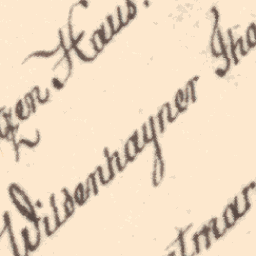 zen Haus.
Witsenhayner Tho
tmar